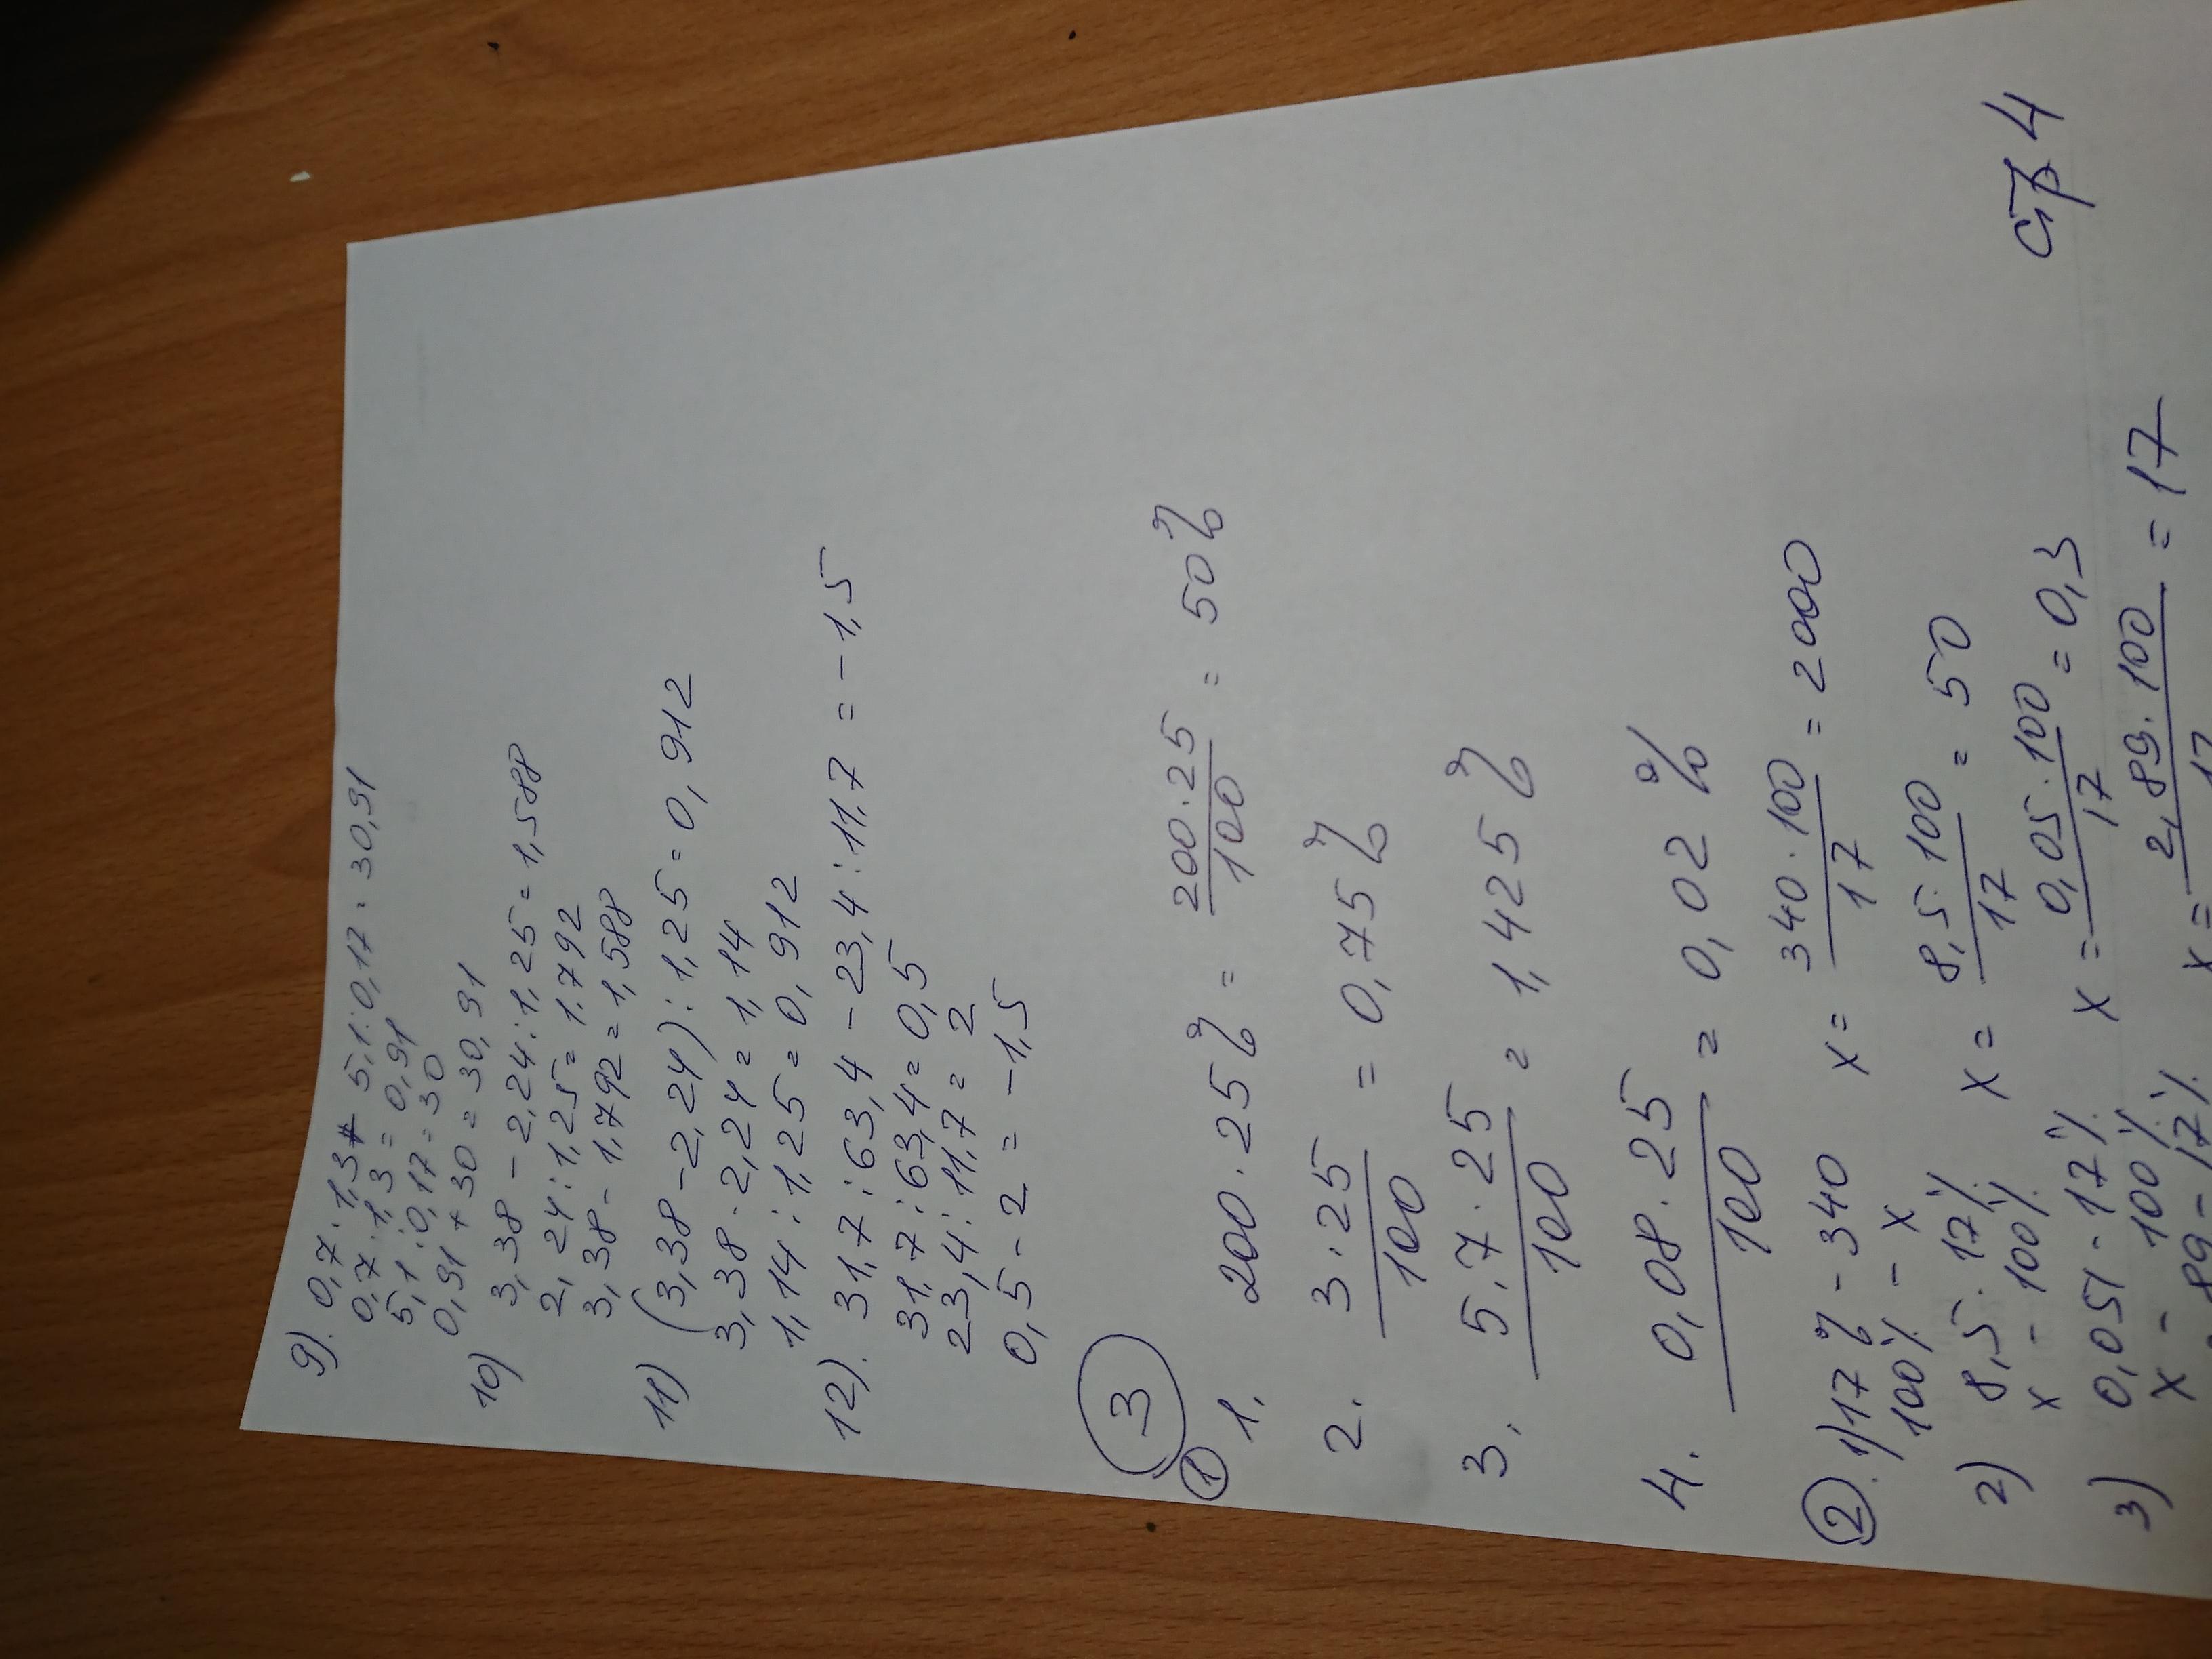 9). 0,7 · 1,3 + 5,1 : 0,17 = 30,91
0,7 · 1,3 = 0,91
5,1 : 0,17 = 30
0,91 + 30 = 30,91
10) 3,38 - 2,24 : 1,25 = 1,588
2,24 : 1,25 = 1,792
3,38 - 1,792 = 1,588
11) (3,38 - 2,24) : 1,25 = 0,912
3,38 - 2,24 = 1,14
1,14 : 1,25 = 0,912
12). 31,7 : 63,4 - 23,4 : 11,7 = -1,5
31,7 : 63,4 = 0,5
23,4 : 11,7 = 2
0,5 - 2 = -1,5
3
1 1. 200 · 25% = 200 · 25 / 100 = 50%
2. 3 · 25 / 100 = 0,75%
3. 5,7 · 25 / 100 = 1,425%
4. 0,08 · 25 / 100 = 0,02%
2. 1) 17% - 340 x = 340 · 100 / 17 = 2000
100% - x
2) 8,5 - 17% x = 8,5 · 100 / 17 = 50
x - 100%
3) 0,051 - 17% x = 0,05 · 100 / 17 = 0,3
x - 100%
89 - 17% x = 2,89 · 100 / 17 = 17
стр 4